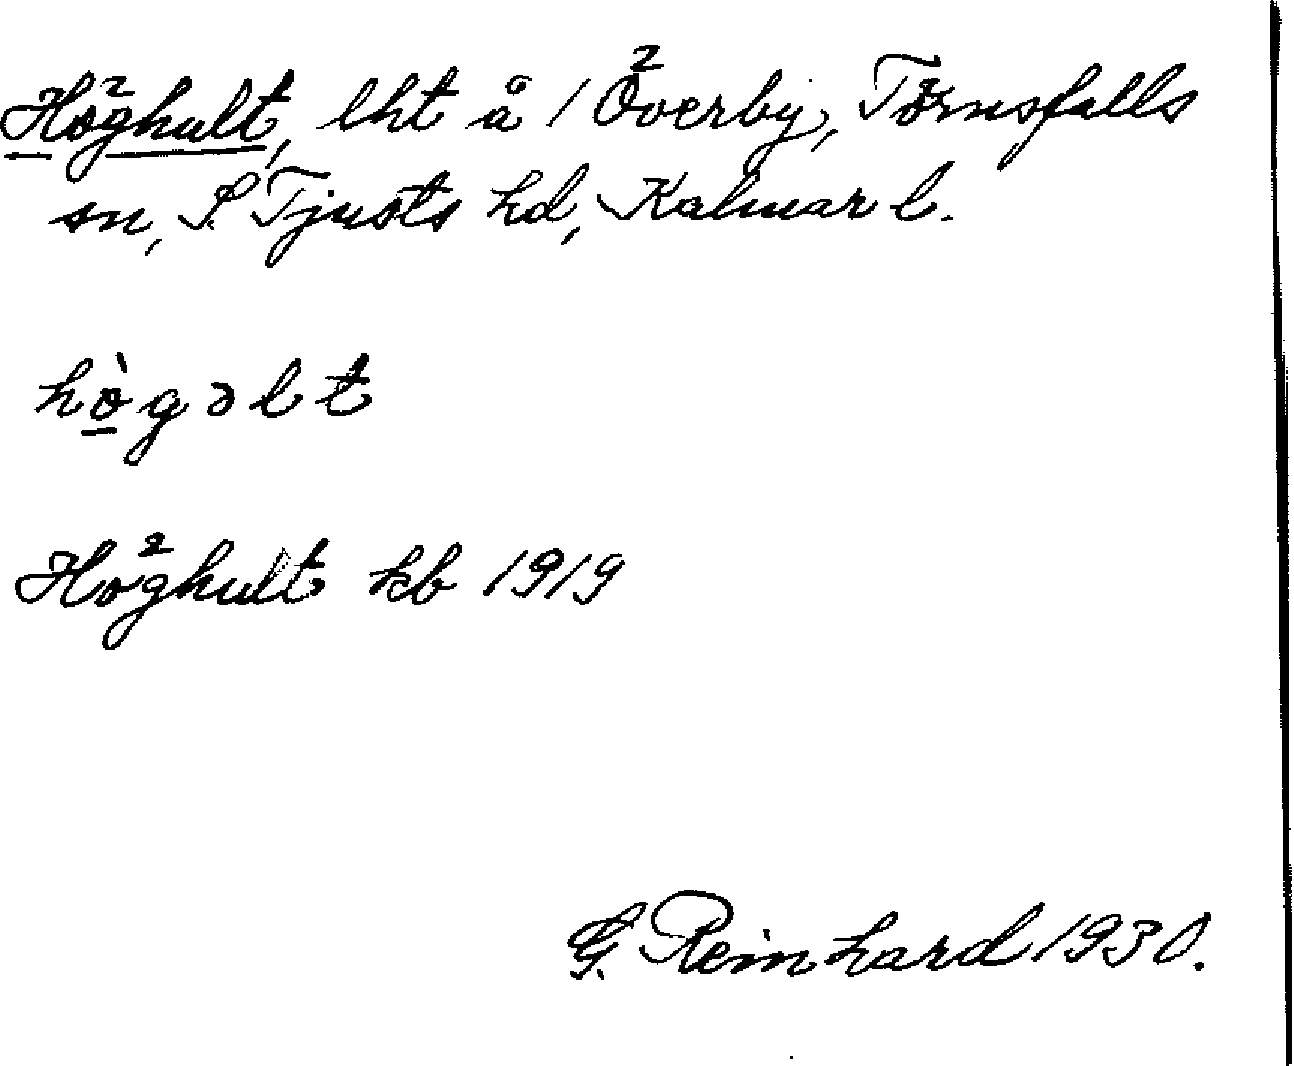 Höghult, lht å 1 Överby, Törnsfalls
sn, S. Tjusts hd, Kalmar l.
hò̱gəlt
Höghult kb 1919
G. Reinhard 1930.